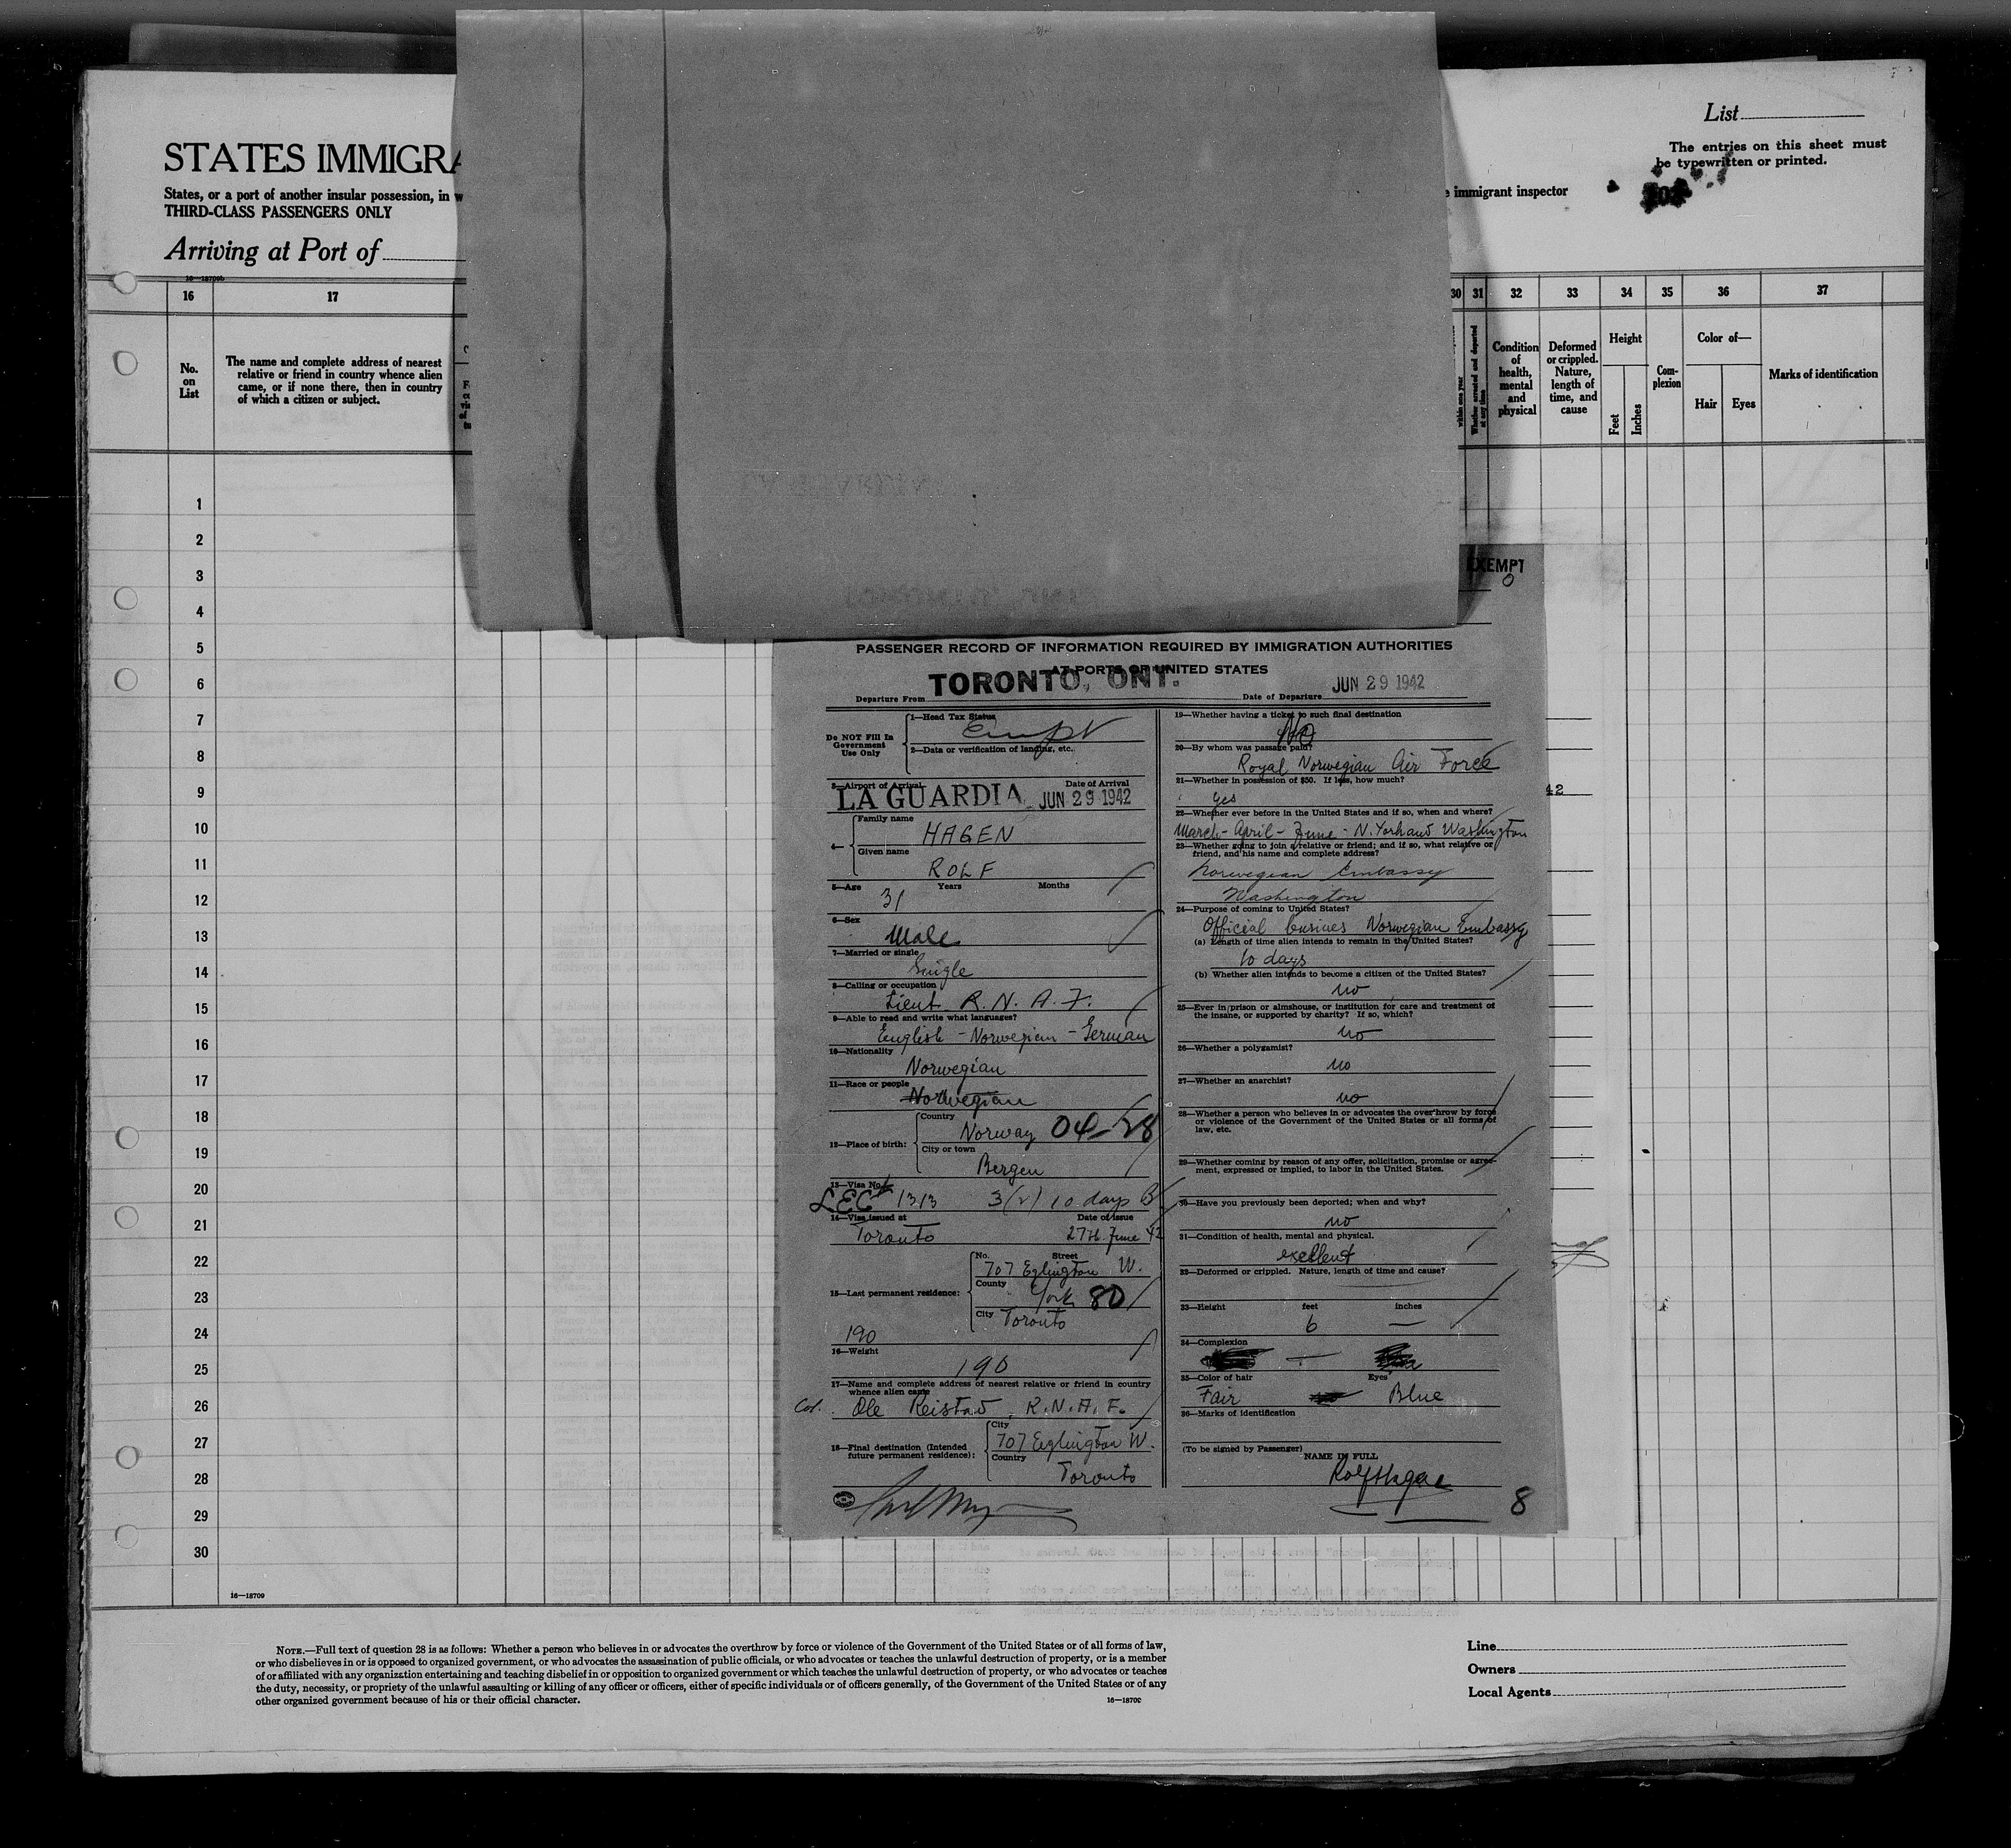 List
The entries on this sheet must
be typewritten or printed.
STATES IMMIGRA
States, or a port of another insular possession, in w
immigrant inspector
THIRD-CLASS PASSENGERS ONLY
Arriving at Port of
16—18709b
16 17 30 31 32 33 34 35 36 37
No. on List
The name and complete address of nearest
relative or friend in country whence alien
came, or if none there, then in country
of which a citizen or subject.
within one year
Whether arrested and deported at any time
Condition of health, mental and physical
Deformed or crippled. Nature, length of time, and cause
Height
Feet Inches
Complexion
Color of—
Hair Eyes
Marks of identification
1
2
3
4
5
6
7
8
9
10
11
12
13
14
15
16
17
18
19
20
21
22
23
24
25
26
27
28
29
30
16—18709
EXEMPT
0
PASSENGER RECORD OF INFORMATION REQUIRED BY IMMIGRATION AUTHORITIES
AT PORTS OF UNITED STATES
Departure From TORONTO, ONT. Date of Departure JUN 29 1942
Do NOT Fill In
Government
Use Only
1—Head Tax Status
2—Data or verification of landing, etc.
3—Airport of Arrival Date of Arrival
LA GUARDIA JUN 29 1942
4—
Family name
HAGEN
Given name
ROLF
5—Age Years Months
31
6—Sex
Male
7—Married or single
Single
8—Calling or occupation
Lieut R. N. A. F.
9—Able to read and write what languages?
English - Norwegian - German
10—Nationality
Norwegian
11—Race or people
Norwegian
12—Place of birth:
Country
Norway 04-28
City or town
Bergen
13—Visa No.
LEC 1313 3(2) 10 days B
14—Visa issued at Date of issue
Toronto 27th June 42
15—Last permanent residence:
No. Street
707 Eglington W.
County
York 80
City Toronto
190
16—Weight
190
17—Name and complete address of nearest relative or friend in country
whence alien came
Col. Ole Reistad, R.N.A.F.
18—Final destination (Intended
future permanent residence):
City
707 Eglington W.
Country
Toronto
19—Whether having a ticket to such final destination
No
20—By whom was passage paid?
Royal Norwegian Air Force
21—Whether in possession of $50. If less, how much?
yes
22—Whether ever before in the United States and if so, when and where?
March - April - June - N. York and Washington
23—Whether going to join a relative or friend; and if so, what relative or
friend, and his name and complete address?
Norwegian Embassy
Washington
24—Purpose of coming to United States?
Official busines Norwegian Embassy
(a) Length of time alien intends to remain in the United States?
10 days
(b) Whether alien intends to become a citizen of the United States?
no
25—Ever in prison or almshouse, or institution for care and treatment of
the insane, or supported by charity? If so, which?
no
26—Whether a polygamist?
no
27—Whether an anarchist?
no
28—Whether a person who believes in or advocates the overthrow by force
or violence of the Government of the United States or all forms of
law, etc.
29—Whether coming by reason of any offer, solicitation, promise or agree-
ment, expressed or implied, to labor in the United States.
30—Have you previously been deported; when and why?
no
31—Condition of health, mental and physical.
exellent
32—Deformed or crippled. Nature, length of time and cause?
33—Height feet inches
6 —
34—Complexion
35—Color of hair Eyes
Fair Blue
36—Marks of identification
(To be signed by Passenger)
NAME IN FULL
Rolf Hagen
8
42
NOTE.—Full text of question 28 is as follows: Whether a person who believes in or advocates the overthrow by force or violence of the Government of the United States or of all forms of law,
or who disbelieves in or is opposed to organized government, or who advocates the assassination of public officials, or who advocates or teaches the unlawful destruction of property, or is a member
of or affiliated with any organization entertaining and teaching disbelief in or opposition to organized government or which teaches the unlawful destruction of property, or who advocates or teaches
the duty, necessity, or propriety of the unlawful assaulting or killing of any officer or officers, either of specific individuals or of officers generally, of the Government of the United States or of any
other organized government because of his or their official character.
16—1870
Line
Owners
Local Agents